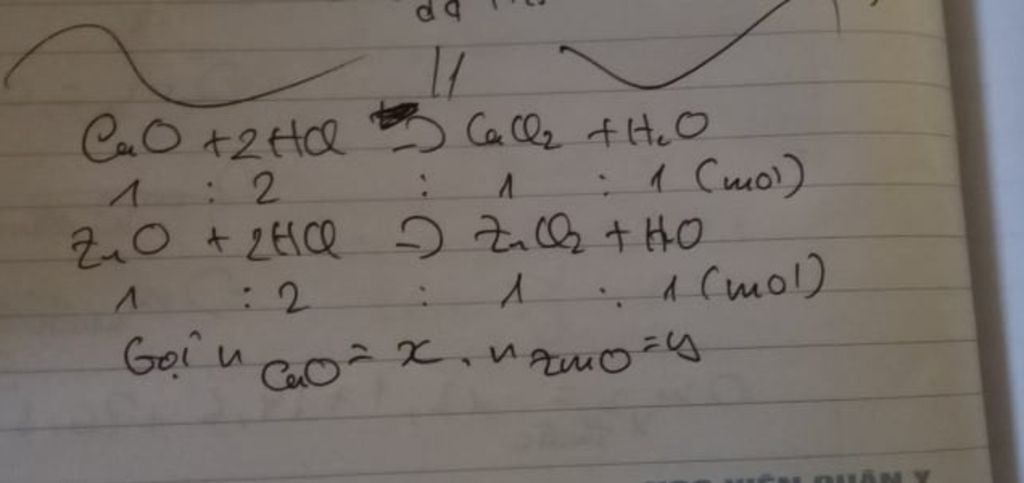 dd
11
CaO + 2HCl => CaCl₂ + H₂O
1 : 2 : 1 : 1 (mol)
ZnO + 2HCl => ZnCl₂ + H₂O
1 : 2 : 1 : 1 (mol)
Gọi n CaO = x, n ZnO = y
QUÂN Y